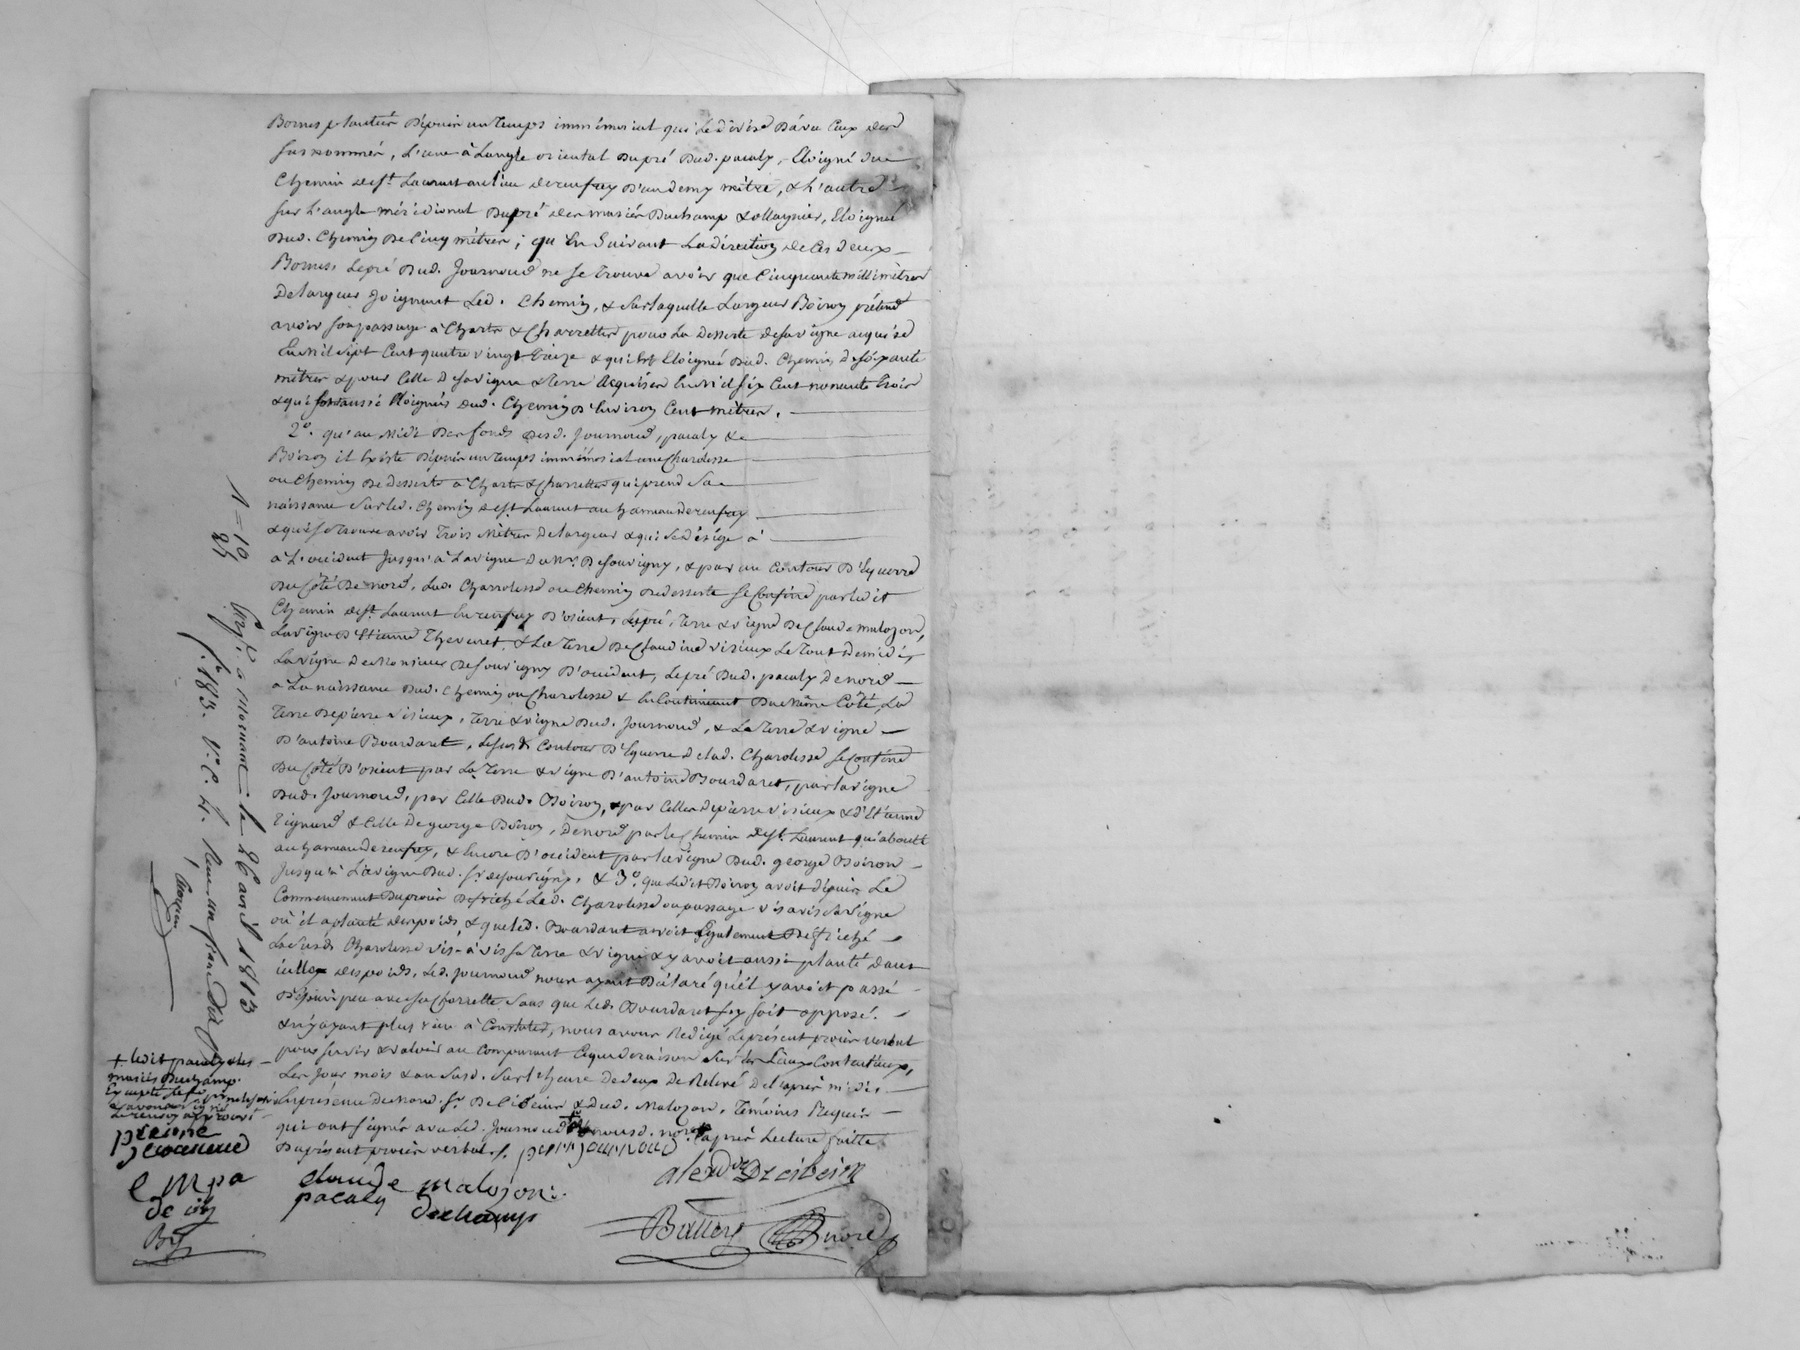 Bornes plantées dépuis un temps immémorial qui le divise d'avec Ceux des
susnommés, L'une à Langle oriental du pré dud. pacaly, Eloigné du
Chemin de st. Laurent au lieu de d'un demy mètre, & L'autre
sur L'angle méridional du pré des mariés Duchamp & ollagnier, Eloigné
dud. Chemin de Cinq mètres; qu'En Suivant La diréction de Ces deux
Bornes, Le pré dud. Journoud ne se trouve avoir que Cinquante millimètres
De largeur Joignant Led. Chemin, & sur laquelle Largeur Boiron prétend
avoir son passage à Chars & Charrettes pour La Desserte de sa vigne acquise
En mil sept Cent quatre vingt treize & qui est Eloignée dud. Chemin de soixante
mètres & pour Celle de sa vigne & terre Acquises En mil six Cent nonante trois
& qui sont aussi Eloignés dud. Chemin d'Environ Cent mètres.
2°. qu'au Midi des fonds desd. Journoud, pacaly &
Boiron il Existe dépuis un temps immémorial une Charolesse
ou Chemin de desserte à Chars & Charrettes qui prend Sa
naissance Sur led. Chemin de st. Laurent au hameau de
& qui se trouve avoir trois Mètres de largeur & qui se dirige à
à L'occident Jusqu'à La vigne de Mr. De souvigny, & par un Contour d'Equerre
du Côté de nord, Lad. Charrolesse ou Chemin de desserte se Confine par ledit
Chemin de st. Laurent En d'orient, Le pré, terre & vigne de Claude malozon,
La vigne d'Etienne Thevenet & La terre de Claudine visieux Le tout de midi,
La vigne de Monsieur De souvigny d'occident, Le pré dud. pacaly de nord
à La naissance dud. Chemin ou Charolesse & En Continuant du même Côté, La
terre de pierre visieux, terre & vigne dud. Journoud, & La terre & vigne
D'antoine Bourdaret, Le susd. Contour d'Equerre de lad. Charolesse se Confine
du Côté d'orient par La terre & vigne d'antoine Bourdaret, par la vigne
dud. Journoud, par Celle dud. Boiron, & par Celles de pierre visieux & d'Etienne
Tignard & Celle de george Boiron, de nord par le Chemin de st. Laurent qui aboutit
au hameau de, & Encore d'occident par la vigne dud. george Boiron
Jusqu'à La vigne dud. Sr. de souvigny, & 3°. que Ledit Boiron avoit dépuis Le
Commencement du procès défriché Lad. Charolesse ou passage vis avis sa vigne
où il a planté des pois, & que led. Bourdaret avoit Egalement Défriché
La Susd. Charolesse vis-à-vis sa terre & vigne & y avoit aussi planté dans
icelle des pois, Led. Journoud nous ayant Déclaré qu'il y avoit passé
Dépuis peu avec sa Charrette Sans que Led. Bourdaret s'y soit opposé.
& n'y ayant plus rien à Constater, nous avons Rédigé Le présent procès verbal
pour servir & valoir au Comparant Ce que de raison Sur Contentieux,
Les Jour mois & an Susd. Sur l'heure de deux de Relevé de l'après midi,
En présence de Sr. Decibeins & dud. Malozon, témoins Requis
qui ont signés avec Led. Journoud & nousd. nore. après Lecture faitte
du présent procès verbal. pierre journoud
+ ledit pacaly & les
mariés Duchamp.
Excepté
& avons signé
Le renvoy approuvé
pierre
journoud
C M pa
de
claude malozon
pacaly dechamps
alexdre Decibein
N = 10
Eng. à Mornant le 26 avril 1813
f° 183. V° C. 4. Reçu un franc Dix